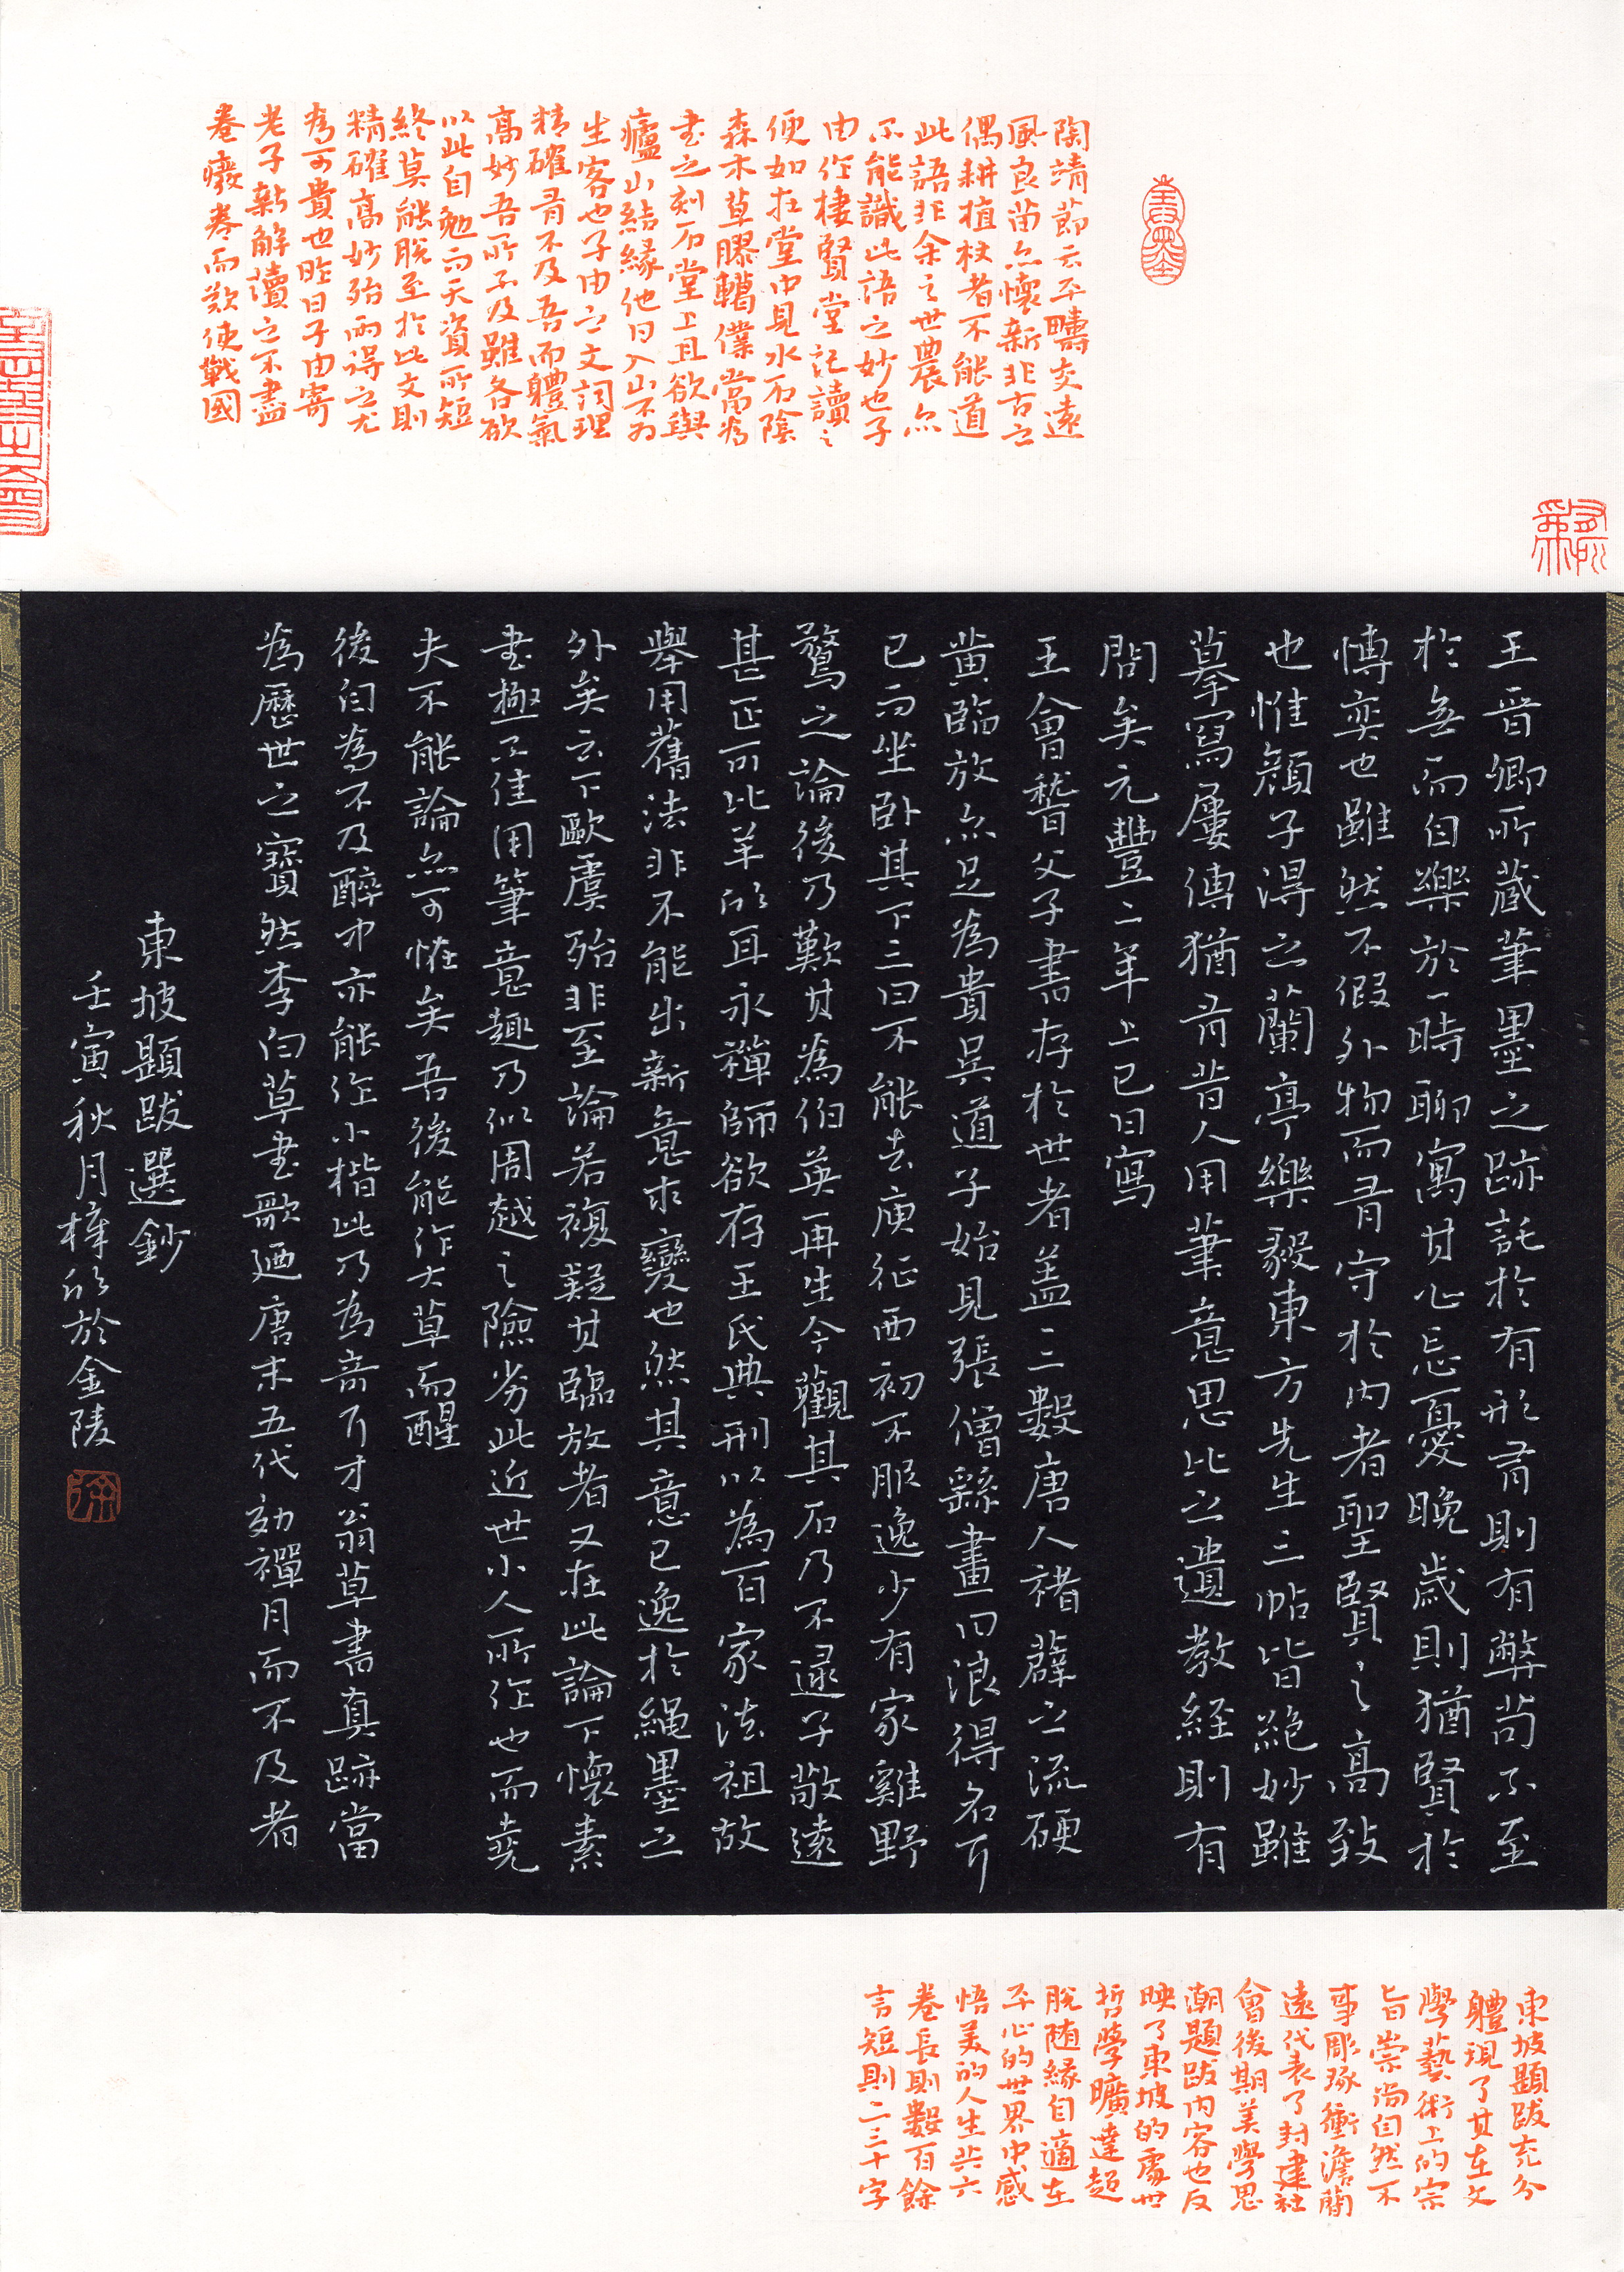 陶靖節云平疇交遠
風良苗亦懷新非古之
偶耕植杖者不能道
此語非余之世農亦
不能識此語之妙也子
由作棲賢堂記讀之
便如在堂中見水石陰
森木草膠轕僕當為
書之刻石堂上且欲與
廬山結緣他日入山不為
生客也子由之文詞理
精確有不及吾而體氣
高妙吾所不及雖各欲
以此自勉而天資所短
終莫能脫至於此文則
精確高妙殆兩得之尤
為可貴也昨日子由寄
老子新解讀之不盡
卷廢卷而歎使戰國
王晉卿所藏筆墨之跡託於有形有則有弊苟不至
於無而自樂於一時聊寓其心忘憂晚歲則猶賢於
博奕也雖然不假外物而有守於內者聖賢之高致
也惟顏子得之蘭亭樂毅東方先生三帖皆絕妙雖
摹寫屢傳猶有昔人用筆意思比之遺教經則有
間矣元豐二年上巳日寫
王會稽父子書存於世者蓋二三數唐人褚薛之流硬
黃臨放亦足為貴吳道子始見張僧繇畫曰浪得名耳
已而坐臥其下三日不能去庾征西初不服逸少有家雞野
鶩之論後乃歎其為伯英再生今觀其石乃不逮子敬遠
甚正可比羊欣耳永禪師欲存王氏典刑以為百家法祖故
舉用舊法非不能出新意求變也然其意已逸於繩墨之
外矣云下歐虞殆非至論若複疑其臨放者又在此論下懷素
書極不佳用筆意趣乃似周越之險劣此近世小人所作也而堯
夫不能論亦可怪矣吾後能作大草而醒
後自為不及醉中亦能作小楷此乃為奇耳才翁草書真跡當
為歷世之寶然李白草書歌迺唐末五代効禪月而不及者
東坡題跋選鈔
壬寅秋月樟欣於金陵
東坡題跋充分
體現了其在文
學藝術上的宗
旨崇尚自然不
事彫琢衝澹簡
遠代表了封建社
會後期美學思
潮題跋內容也反
映了東坡的處世
哲學曠達超
脫隨緣自適在
平心的世界中感
悟美的人生共六
卷長則數百餘
言短則二三十字